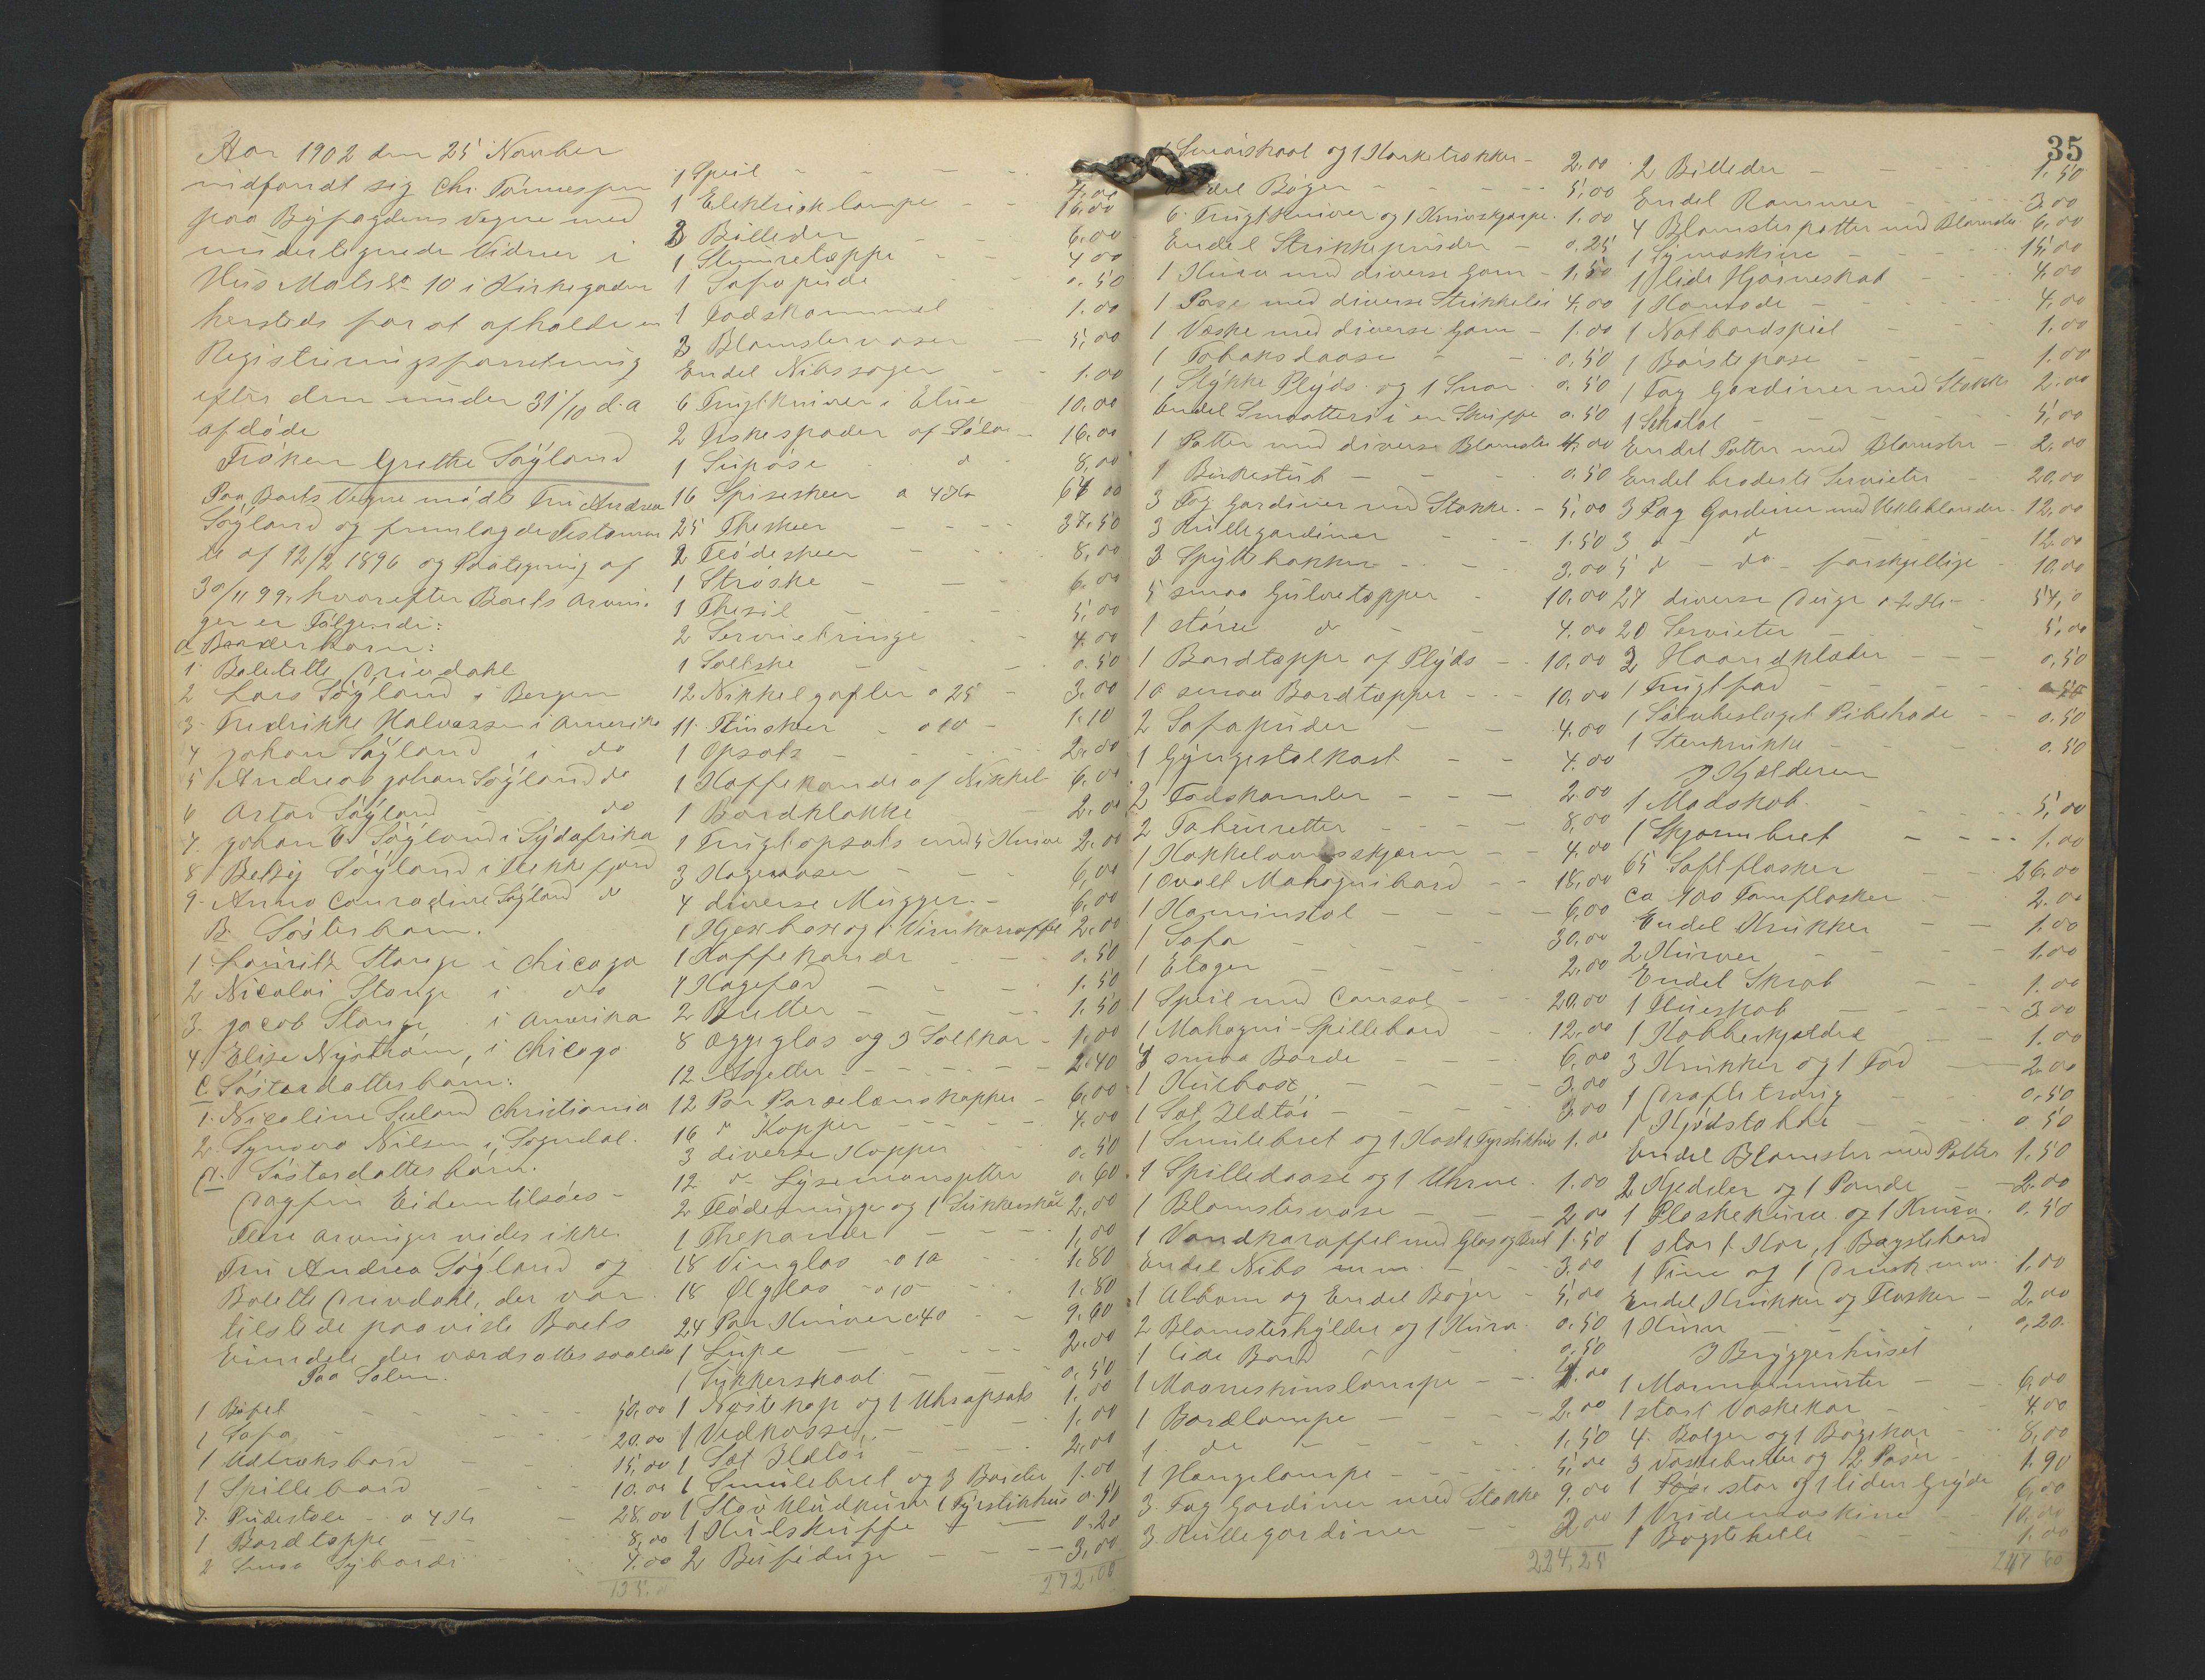 Aar 1902 den 25 November
indfandt sig Chr. Tønnesen
paa Byfogdens Vegne med
undertegnede Vidner i
Hus Mats No 10 i Kirkegaden
hersteds for at afholde en
Registreringsforretning
efter den under 31/10 d. a
afdøde
Frøken Grethe Søyland
Paa Boets Vegne mødte Fru Andrea
Søyland og fremlagde Testamen
te af 12/2 1896 og Paategning af
30/11 99, hvorefter Boets Arvin-
ger er Følgende:
a Broderbørn:
1 Boletette Drivdahl
2 Lars Søyland i Bergen
3 Fredrikke Halvorsen i Amerika
4 Johan Søyland i do
5 Andreas Johan Søyland do
6 Søyland do
7 Johan Søyland i Sydafrika
8 Betsy Søyland i Flekkefjord
9 Anna Conradine Søyland do
B. Søsterbørn.
1 Lauritz Stange i Chicago
2 Nicolai Stange i do
3 Jacob Stange i Amerika
4 Elise Nystrøm, i Chicago
C. Søsterdatterbørn:
1. Nicoline Christiania
2. Nilsen i Sogndal.
D. Søsterdatterbørn.
Dagfin Eidem
Flere arvinger vides ikke
Fru Andrea Søyland og
Bolette Drivdahl, der var
tilstede paaviste Boets
Eiendele der værdsattes saaledes
Paa Salen.
1 Bøfet 50,00
1 Sofa 20.00
1 Udtræksbord 15,00
1 Spillebord 10.00
7 Pudestole a 4 Kr 28,00
1 Bordtæppe 8,00
2 Smaa Syborde 4.00
135,
1 Speil 4.00
1 Elektrisk lampe 16,00
3 Billeder 6.00
1 Stuuretæppe 4 00
1 Sofapude 0.50
1 Fodskammel 1.00
3 Blomstervaser 5,00
Endel Nibssager 1.00
6 Frugtkniver i Etui 10.00
2 Fiskespader af Sølv 16.00
1 Supøse do 8,00
16 Spiseskeer a 4 Kr 64 00
25 Theskeer 37.50
2 Flødeskeer 8,00
1 Strøske 6.00
1 Thesil 5,00
2 Servietringe 4.00
1 Saltske 0.50
12 Nikkelgafler a 25 3.00
11 Tinskeer a 10 1.10
1 Opsats 2.00
1 Kaffekande af Nikkel 6,00
1 Bordklokke 2.00
1 Frugtopsats med 5 Knive 2.00
3 Kagevaser 6,00
4 diverse Mugger 6.00
1 Kjexbox og 1 Vinkaraffel 2.00
1 Kaffekande 0.50
4 Kagefad 1.50
2 Butter 1.50
8 Æggeglas og 3 Saltkar 1,00
12 Asjetter 2.40
12 Par Porselænskopper 6.00
16 " Kopper 4.00
3 diverse Kopper 0.50
12 do Lysemansjetter 0.60
2 Flødemugger og 1 Sukkerskaal 2,00
1 Thekande 1,00
18 Vinglas a 10 1.80
18 Ølglas a 10 1.80
24 Par Kniver a 40 9.60
1 Lupe 2.00
1 Sukkerskaal 0.50
1 og 1 Uhropsats 1.00
1 Vedkasse 1.00
1 Sæt Ildtøi 2.00
1 Smulebret og 3 Børster 1.00
1 Støvkludkurv 1 Fyrstikhus 0.50
1 Kulskuffe 0.20
2 Bufeduge 3,00
272.00
35
1 Smørskaal og 1 Korketrækker 2.00
Endel Bøger 5,00
6 Frugtkniver og 1 Knivskjærpe. 1.00
Endel Strikkepinder 0.25
1 Kurv med diverse Garn 1,50
1 Pose med diverse Strikketøi 4.00
1 Væske med diverse Garn 1.00
1 Tobaksdaase 0.50
1 Stykke Plyds og 1 Snor 0.50
Endel Smaatteri i en Skuffe 0.50
1 Potter med diverse Blomster 4,00
1 Birkestub 0.50
3 Fag Gardiner med Stokke 5,00
3 Rullegardiner 1.50
3 Spyttebakker 3.00
5 smaa Gulvtæpper 10.00
1 større do 4.00
1 Bordtæppe af Plyds 10,00
10 smaa Bordtæpper 10,00
2 Sofapuder 4.00
1 Gyngestolkast 4.00
2 Fodskamler 2.00
2 Taburetter 8,00
1 Kakkelovnsskjærm 4.00
1 ovalt Mahognibord 18,00
1 Kaminstol 6,00
1 Sofa 30.00
1 Etager 2.00
1 Speil med Consol 20.00
1 Mahogni-Spillebord 12,00
4 smaa Borde 6,00
1 Kulbox 3.00
1 Sæt Ildtøi 3.00
1 Smulebret og 1 Kost 1 Fyrstikhus 1.00
1 Spilledaase og 1 Uhrne 1.00
1 Blomstervase 2.00
1 Vandkaraffel med Glas og Bret 1.50
Endel Nibs m.m. 3.00
1 Album og Endel Bøger 5,00
2 Blomsterhylder og 1 Kurv 0.50
1 lide Bord 0.50
1 Maaneskinslampe 4.00
1 Bordlampe 2.00
1 do 1.50
1 Hængelampe 5,00
3 Fag Gardiner med Stokke 9.00
3 Rullegardiner 2.00
224,25
2 Billeder 1,50
Endel Rammer 3.00
4 Blomsterpotter med Blomster 6,00
1 Symaskine 15,00
1 lide Hjørneskab 4.00
1 Komode 4.00
1 Natbordspeil 1.00
1 Børstepose 1.00
1 Fag Gardiner med Stokke 2.00
1 Stol 5,00
Endel Potter med Blomster 2,00
Endel broderte Servieter 20.00
3 Fag Gardiner med Hekleblonder 12,00
3 do do 12.00
5 do - do - forskjellige 10.00
27 diverse Duge a 2 Kr 54,0
20 Servieter 5,00
2 Haandklæder 0,50
1 Frugtfad
1 Sølvbeslaget Pibehode 0.50
1 Stenkrukke 0.50
I Kjælderen
1 Madskab 5,00
1 Skjærmbret 1.00
65 Saftflasker 26.00
ca 100 Tomflasker 2.00
Endel Krukker 1.00
2 Kurver 1.00
Endel Skrab 1.00
1 Flueskab 3.00
1 Kobberkjedel 1.00
3 Krukker og 1 Fad 2.00
1 0.50
1 Kjødstokke 0.50
Endel Blomster med Potter 1.50
2 Kjedeler og 1 Pande 2.00
1 Flaskekurv og 1 Kurv 0.50
1 stort Kar, 1 Bagstebord
1 Tine og 1 Dunk m.m. 1.00
Endel Krukker og Flasker 2,00
1 Kurv 0,20
I Bryggerhuset
1 6,00
1 stort Vaskekar 4.00
4 Balger og 1 Bøgekar 8,00
3 Vaskebretter og 2 Pøser 1.90
1 stor og 1 liden Gryde 6,00
1 Vridemaskine 10,00
1 Bagstehelle 1.00
247 60